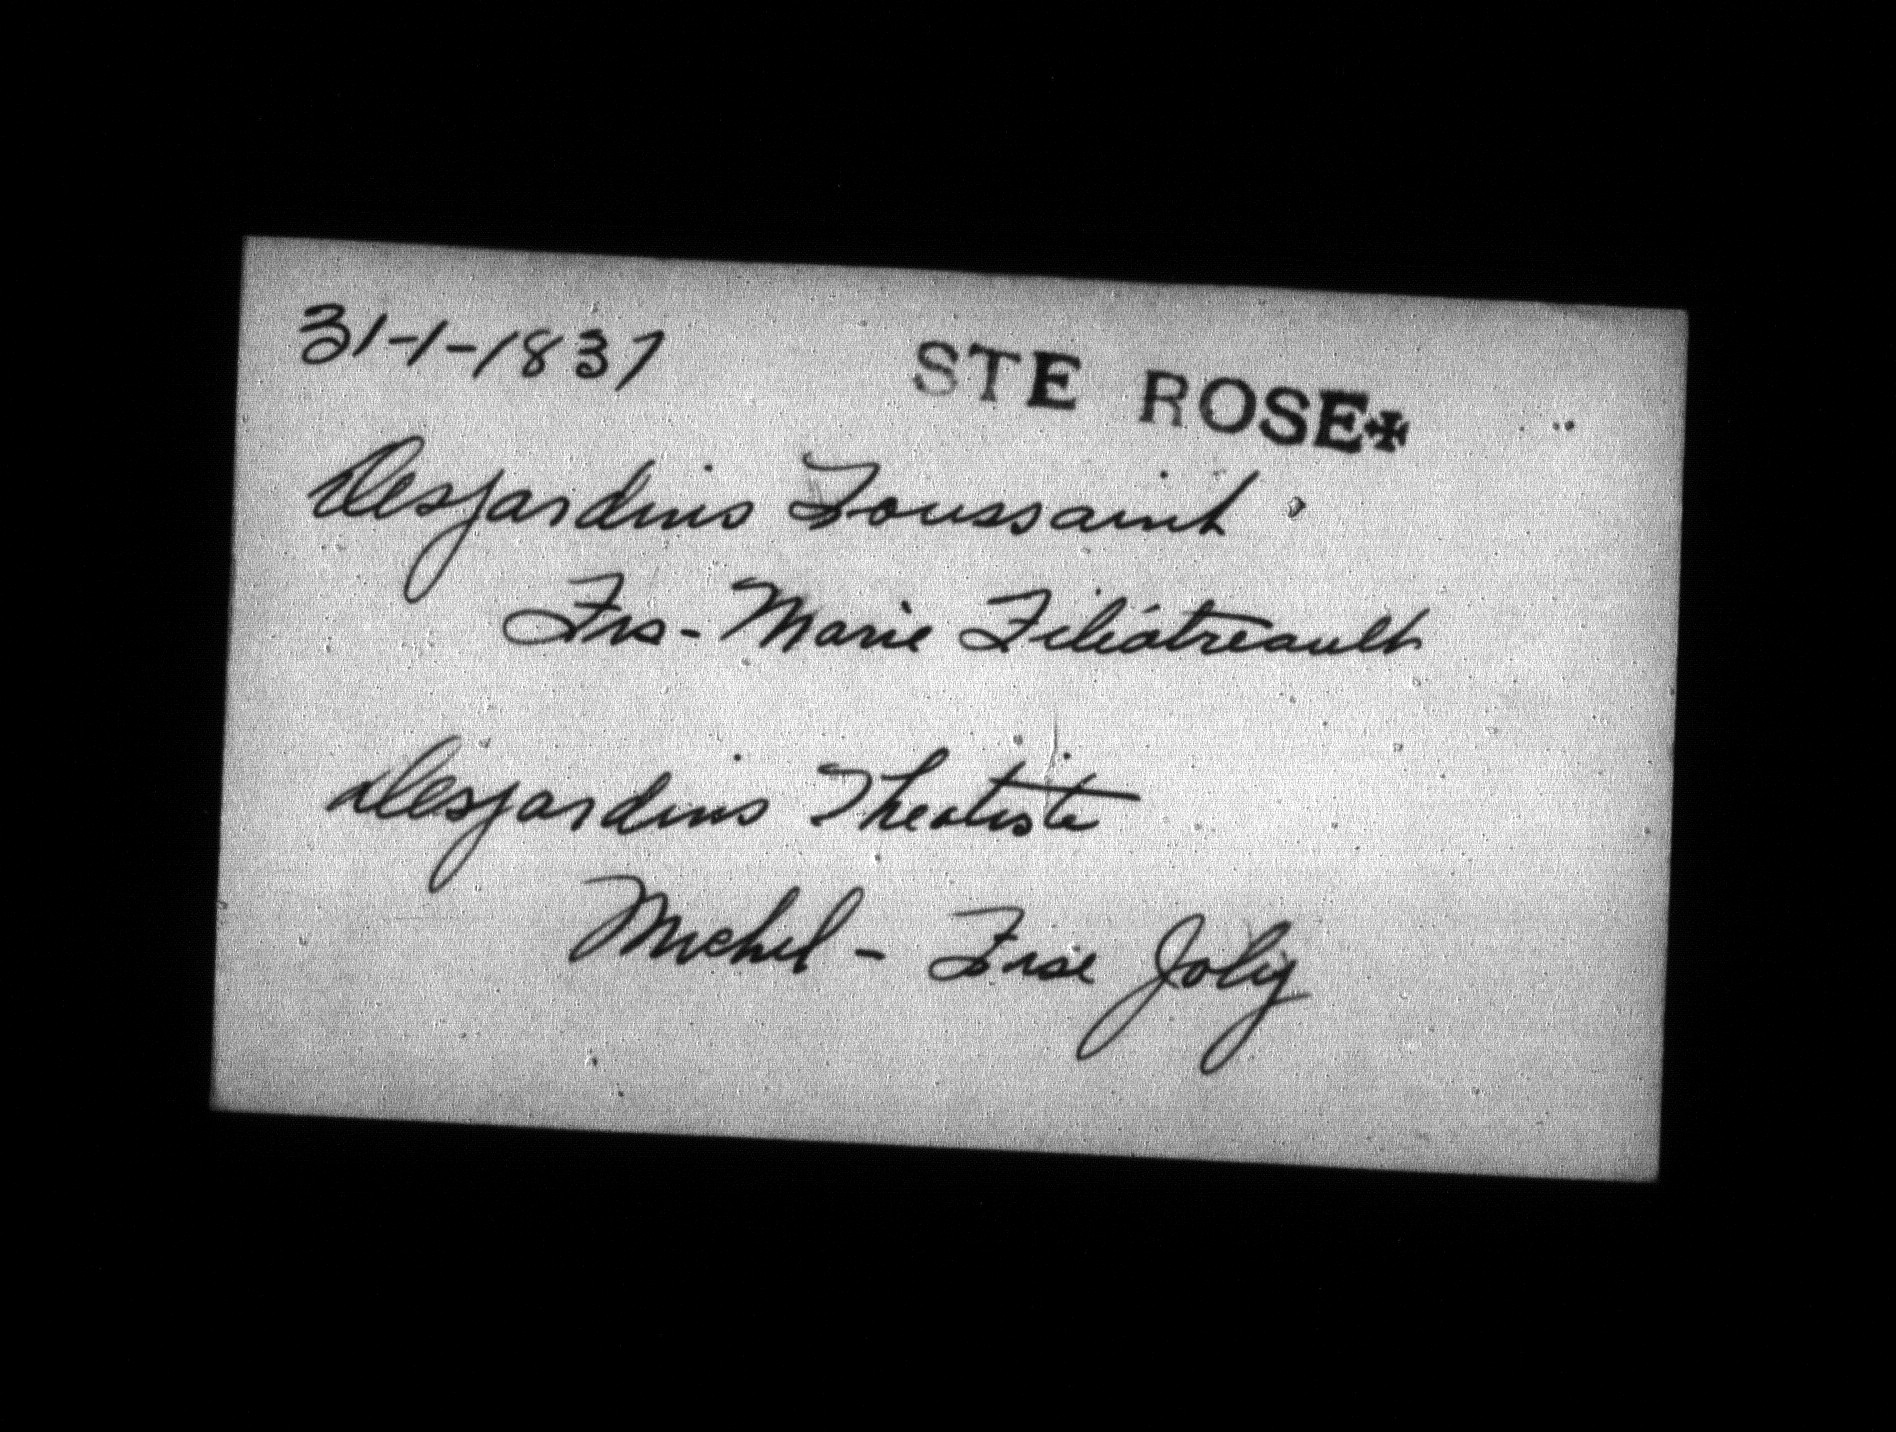 31-1-1837 STE ROSE✠
Desjardins Toussaint
Frs - Marie Filiatreault
Desjardins Theotiste
Michel - Frse Joly